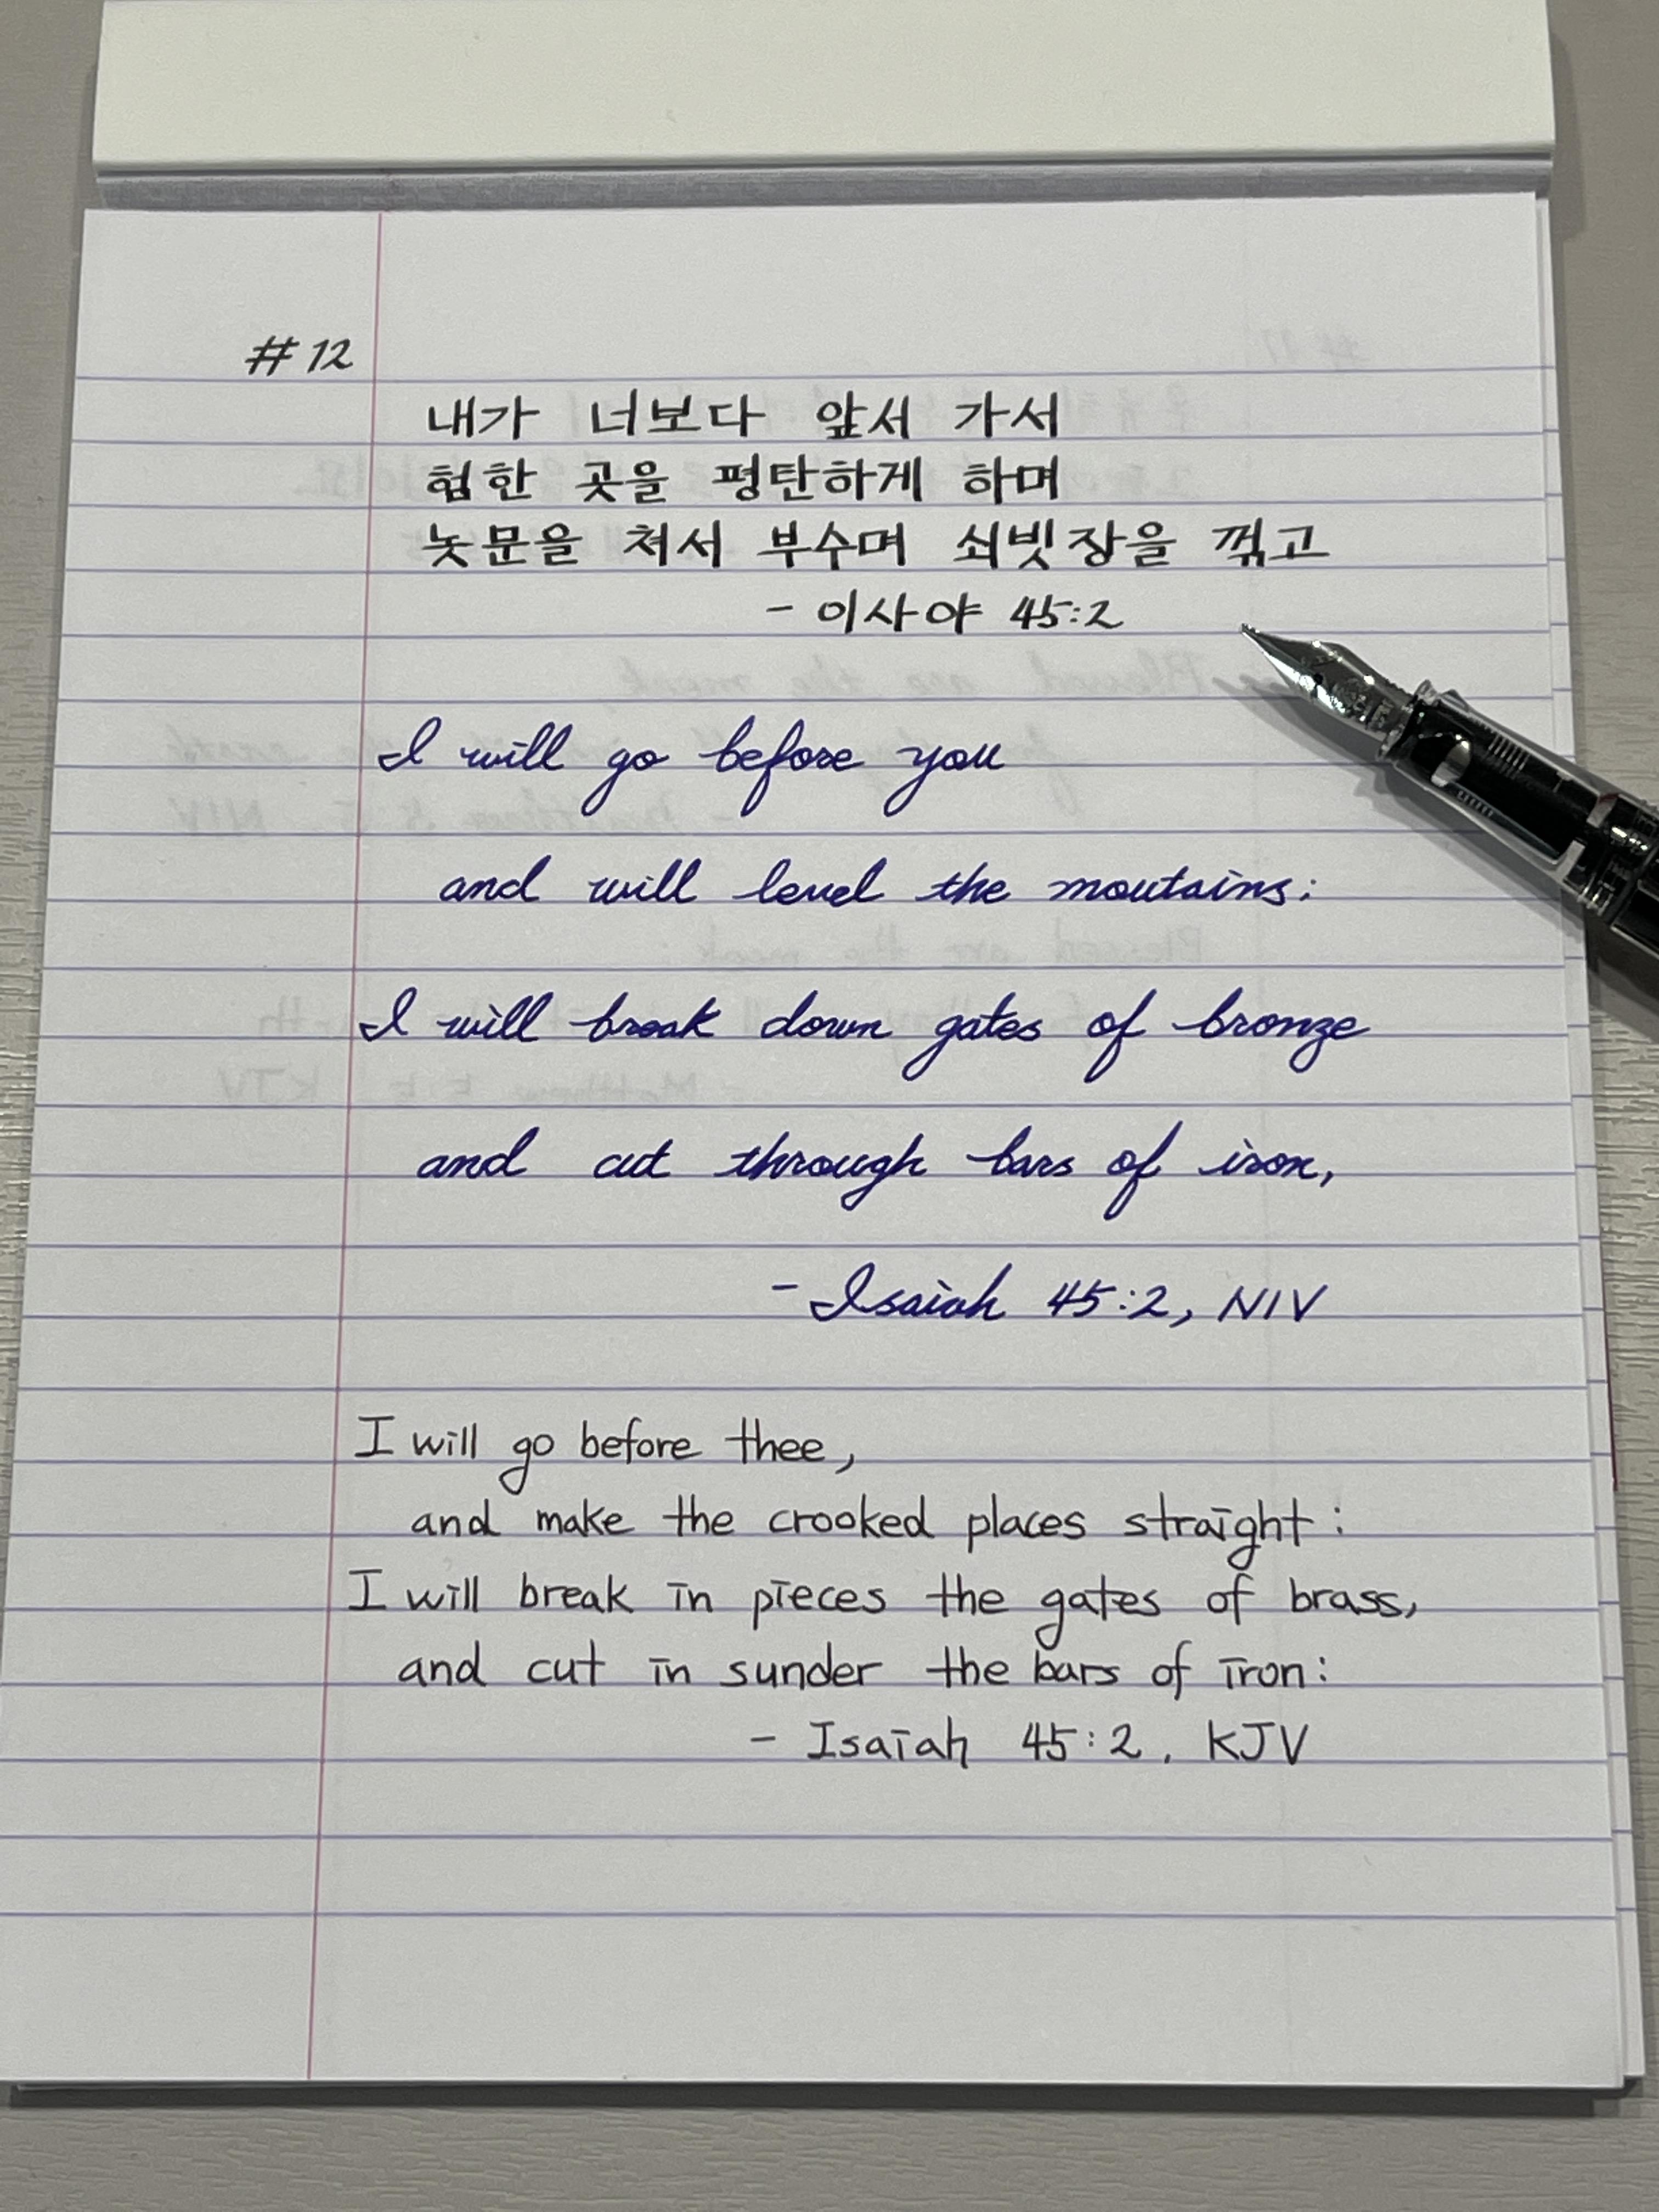 #12
내가 너보다 앞서 가서
험한 곳을 평탄하게 하며
놋문을 쳐서 부수며 쇠빗장을 꺾고
- 이사야 45:2
I will go before you
and will level the moutains:
I will break down gates of bronze
and cut through bars of iron,
- Isaiah 45:2, NIV
I will go before thee,
and make the crooked places straight:
I will break in pieces the gates of brass,
and cut in sunder the bars of iron:
- Isaiah 45:2. KJV